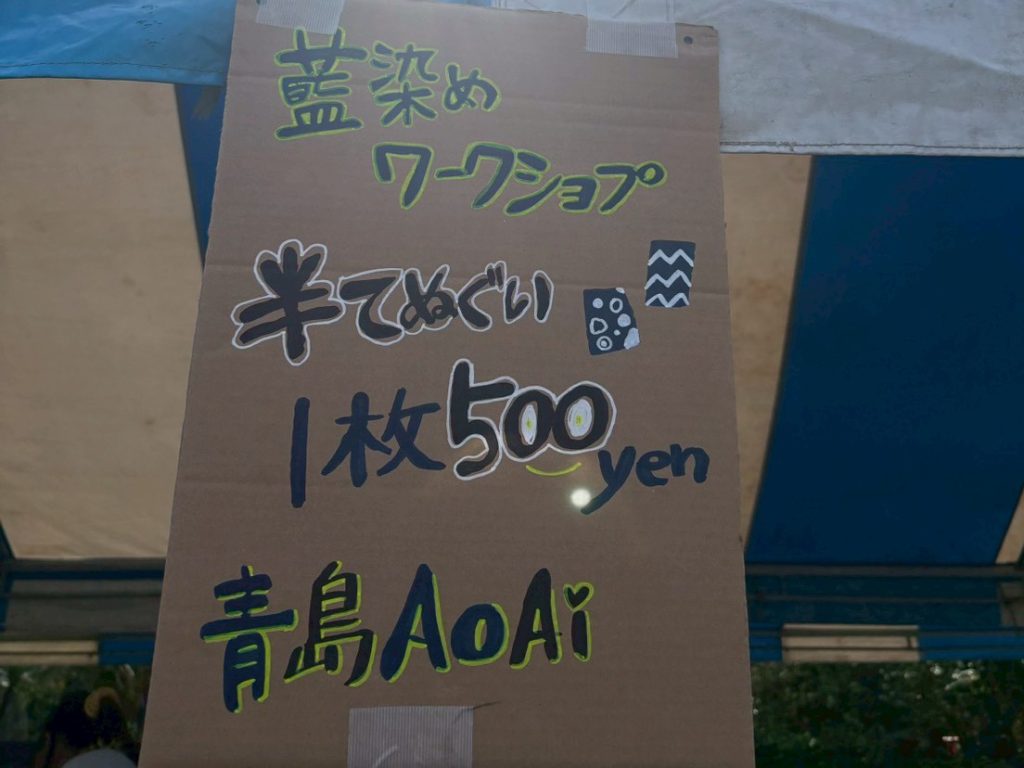 藍染め
ワークショプ
半てぬぐい
1枚500yen
青島AoAi